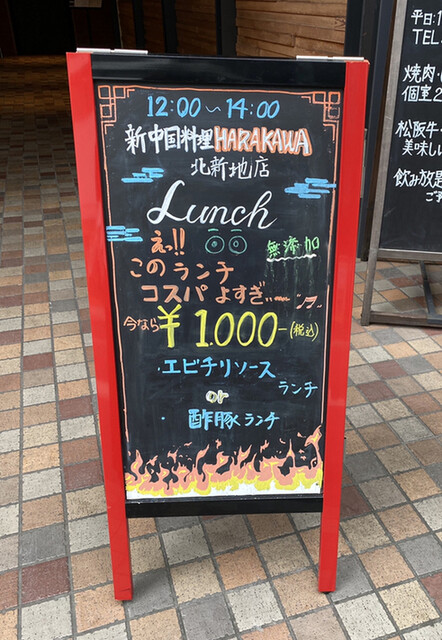 12:00〜14:00
新中国料理HARAKAWA
北新地店
Lunch
えっ!!
無添加
このランチ
コスパよすぎぃー
今なら¥1.000-(税込)
・エビチリソース
ランチ
or
・酢豚ランチ
平日:1
TEL
焼肉・
個室2
松阪牛
美味しい
飲み放題